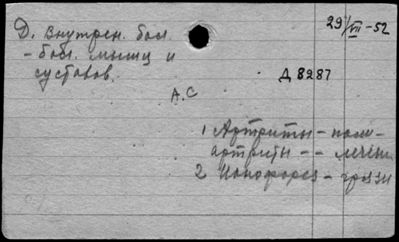 29/VII-52
Д. Внутрен. бол.
- бол. мышц и
суставов.
Д 8287
А.С
1 Артриты - поли-
артриты - - лечен
2 Ионофорез - грязи